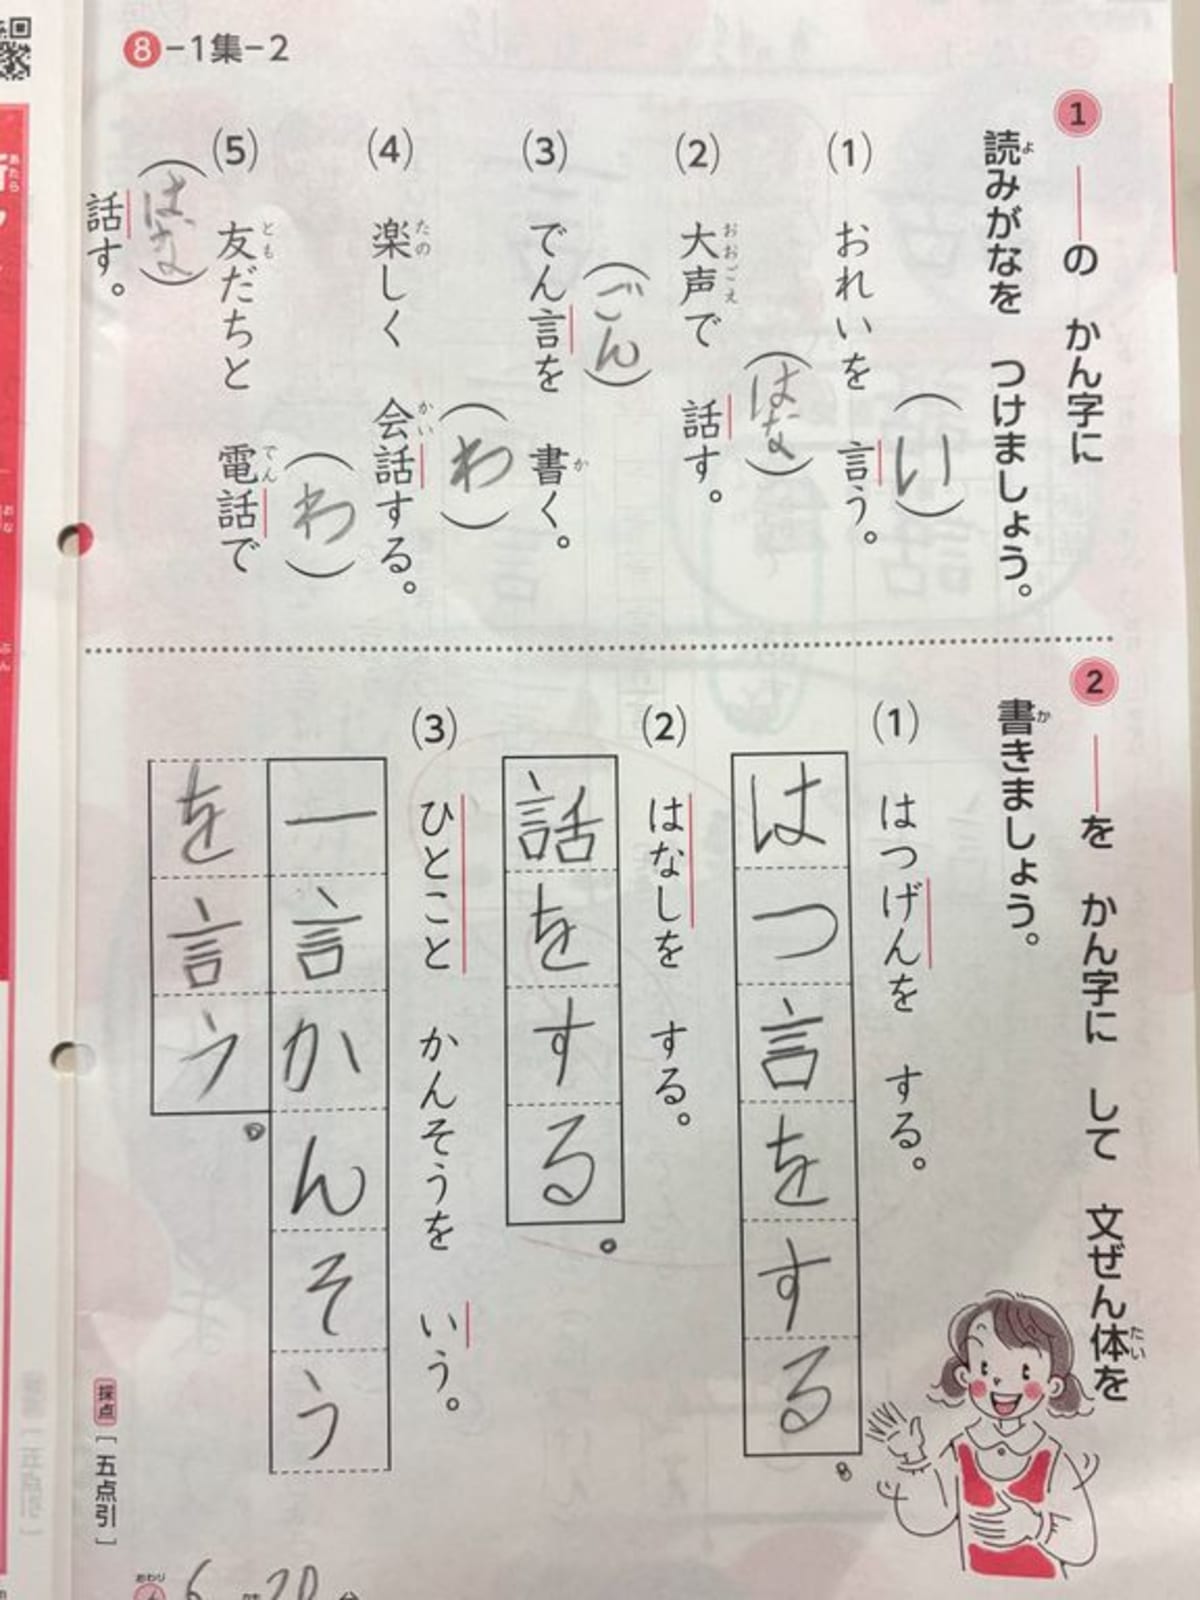 8-1集-2
1 ―の かん字に
読みがなを つけましょう。
よ
(1) おれいを 言う。
(い)
(2) 大声で 話す。
おおごえ
(はな)
(3) でん言を 書く。
か
(ごん)
(4) 楽しく 会話する。
たの かい
(わ)
(5) 友だちと 電話で
とも でん
(わ)
話す。
(はな)
2 ―を かん字に して 文ぜん体を
たい
書きましょう。
か
(1) はつげんを する。
はつ言をする。
(2) はなしを する。
話をする。
(3) ひとこと かんそうを いう。
一言かんそう
を言う。
採点[五点引]
おわり
6時20分
あたら
おな
ぶん